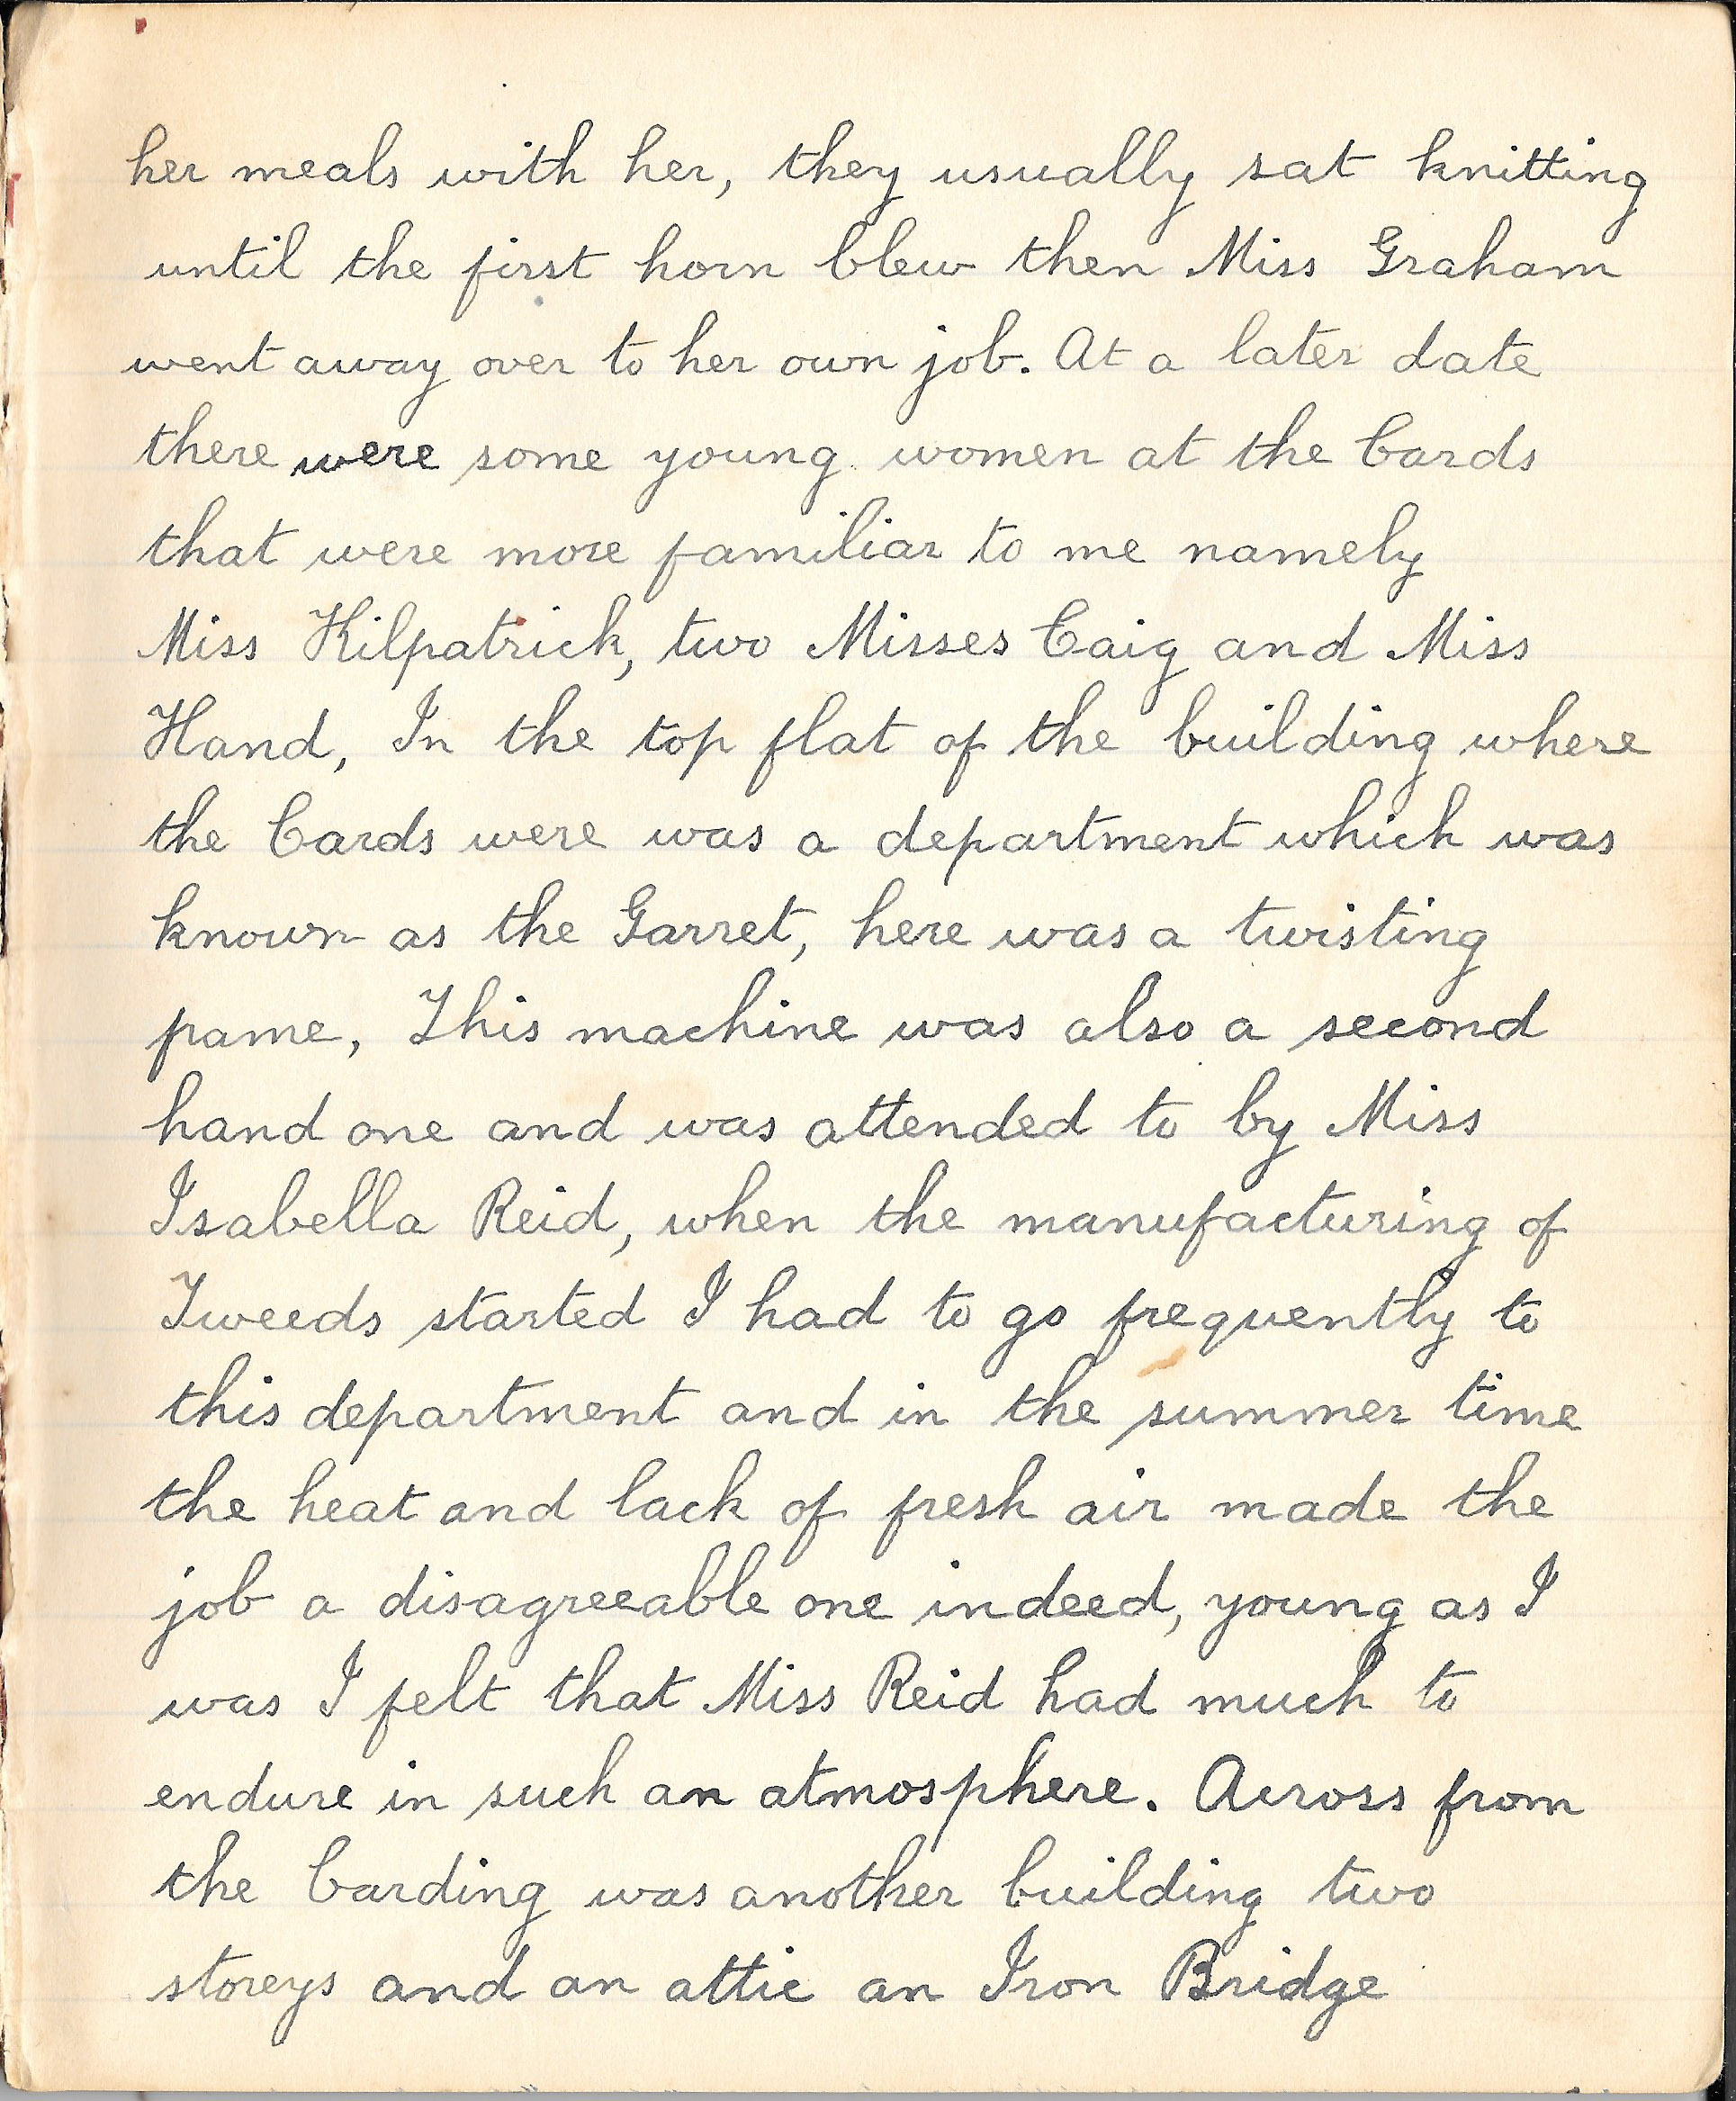 her meals with her, they usually sat knitting
until the first horn blew then Miss Graham
went away over to her own job. At a later date
there were some young women at the Cards
that were more familiar to me namely
Miss Kilpatrick, two Misses Caig and Miss
Hand, In the top flat of the building where
the Cards were was a department which was
known as the Garret, here was a twisting
frame, This machine was also a second
hand one and was attended to by Miss
Isabella Reid, when the manufacturing of
Tweeds started I had to go frequently to
this department and in the summer time
the heat and lack of fresh air made the
job a disagreeable one indeed, young as I
was I felt that Miss Reid had much to
endure in such an atmosphere. Across from
the Carding was another building two
storeys and an attic an Iron Bridge